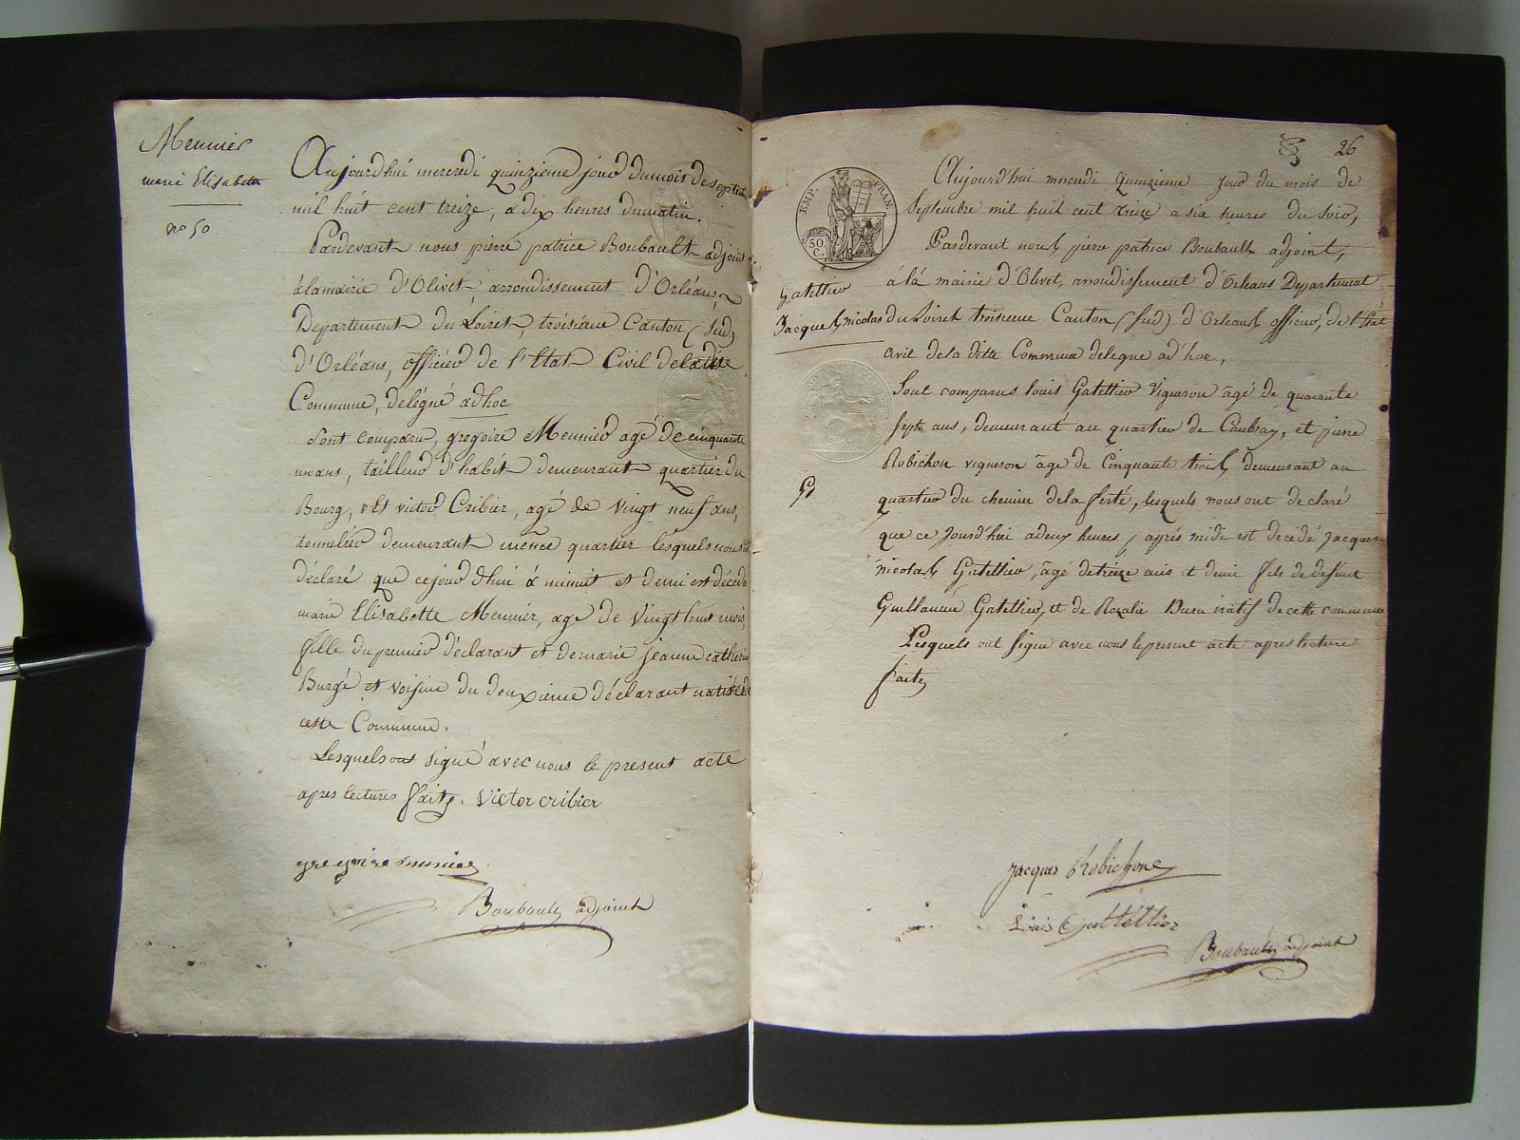 Meunier
marie Elisabette
no 50
Aujourd'hui mercredi quinzieme jour du mois de septembre
mil huit cent treize, a dix heures du matin.
Pardevant nous pierre patrice Boubault adjoint
à la mairie d'Olivet, arrondissement d'Orléans,
Departement du Loiret, troisième Canton (sud)
d'Orléans, officier de l'Etat Civil de ladite
Commune, délégué adhoc
Sont comparu, gregoire Meunier agé de cinquante
un ans, tailleur d'habit demeurant quartier du
Bourg, & Et victor Cribier, agé de vingt neuf ans,
tonnelier demeurant meme quartier lesquels nous
déclaré que cejourd'hui à minuit et demi est décédé
marie Elisabette Meunier, age de vingt huit mois,
fille du premier déclarant et de marie jeanne catherine
Burgé et voisine du deuxième déclarant native de
cette Commune.
Lesquels ont signé avec nous le present acte
apres lectures faite. Victor cribier
gregoire meunier
Boubault adjoint
26
EMP. FRAN.
50 C.
Gatellier
Jacques nicolas
Aujourd'hui mercredi quinzieme jour du mois de
Septembre mil huit cent treize a six heures du soir,
Pardevant nous pierre patrice Boubault adjoint,
à là mairie d'Olivet, arrondissement d'Orleans Departement
du Loiret troisieme Canton (sud) d'Orleans officier, de l'Etat
civil de la ditte Commune delegue ad'hoc,
Sont comparus louis Gatellier vigneron âgé de quarante
sept ans, demeurant au quartier de Caubray, et pierre
Robichon vigneron âge de Cinquante trois demeurant au
quartier du chemin de la ferté, lesquels nous ont declaré
que ce jourd'hui a deux heures, après midi est décédé jacques
nicolas Gatellier, âgé de treize ans et demi fils de defunt
Guillaume Gatellier, et de Rozalie natif de cette commune
Lesquels ont signe avec nous le present acte apres lecture
faite
Jacques Robichon
Louis Gattellier
Boubault adjoint